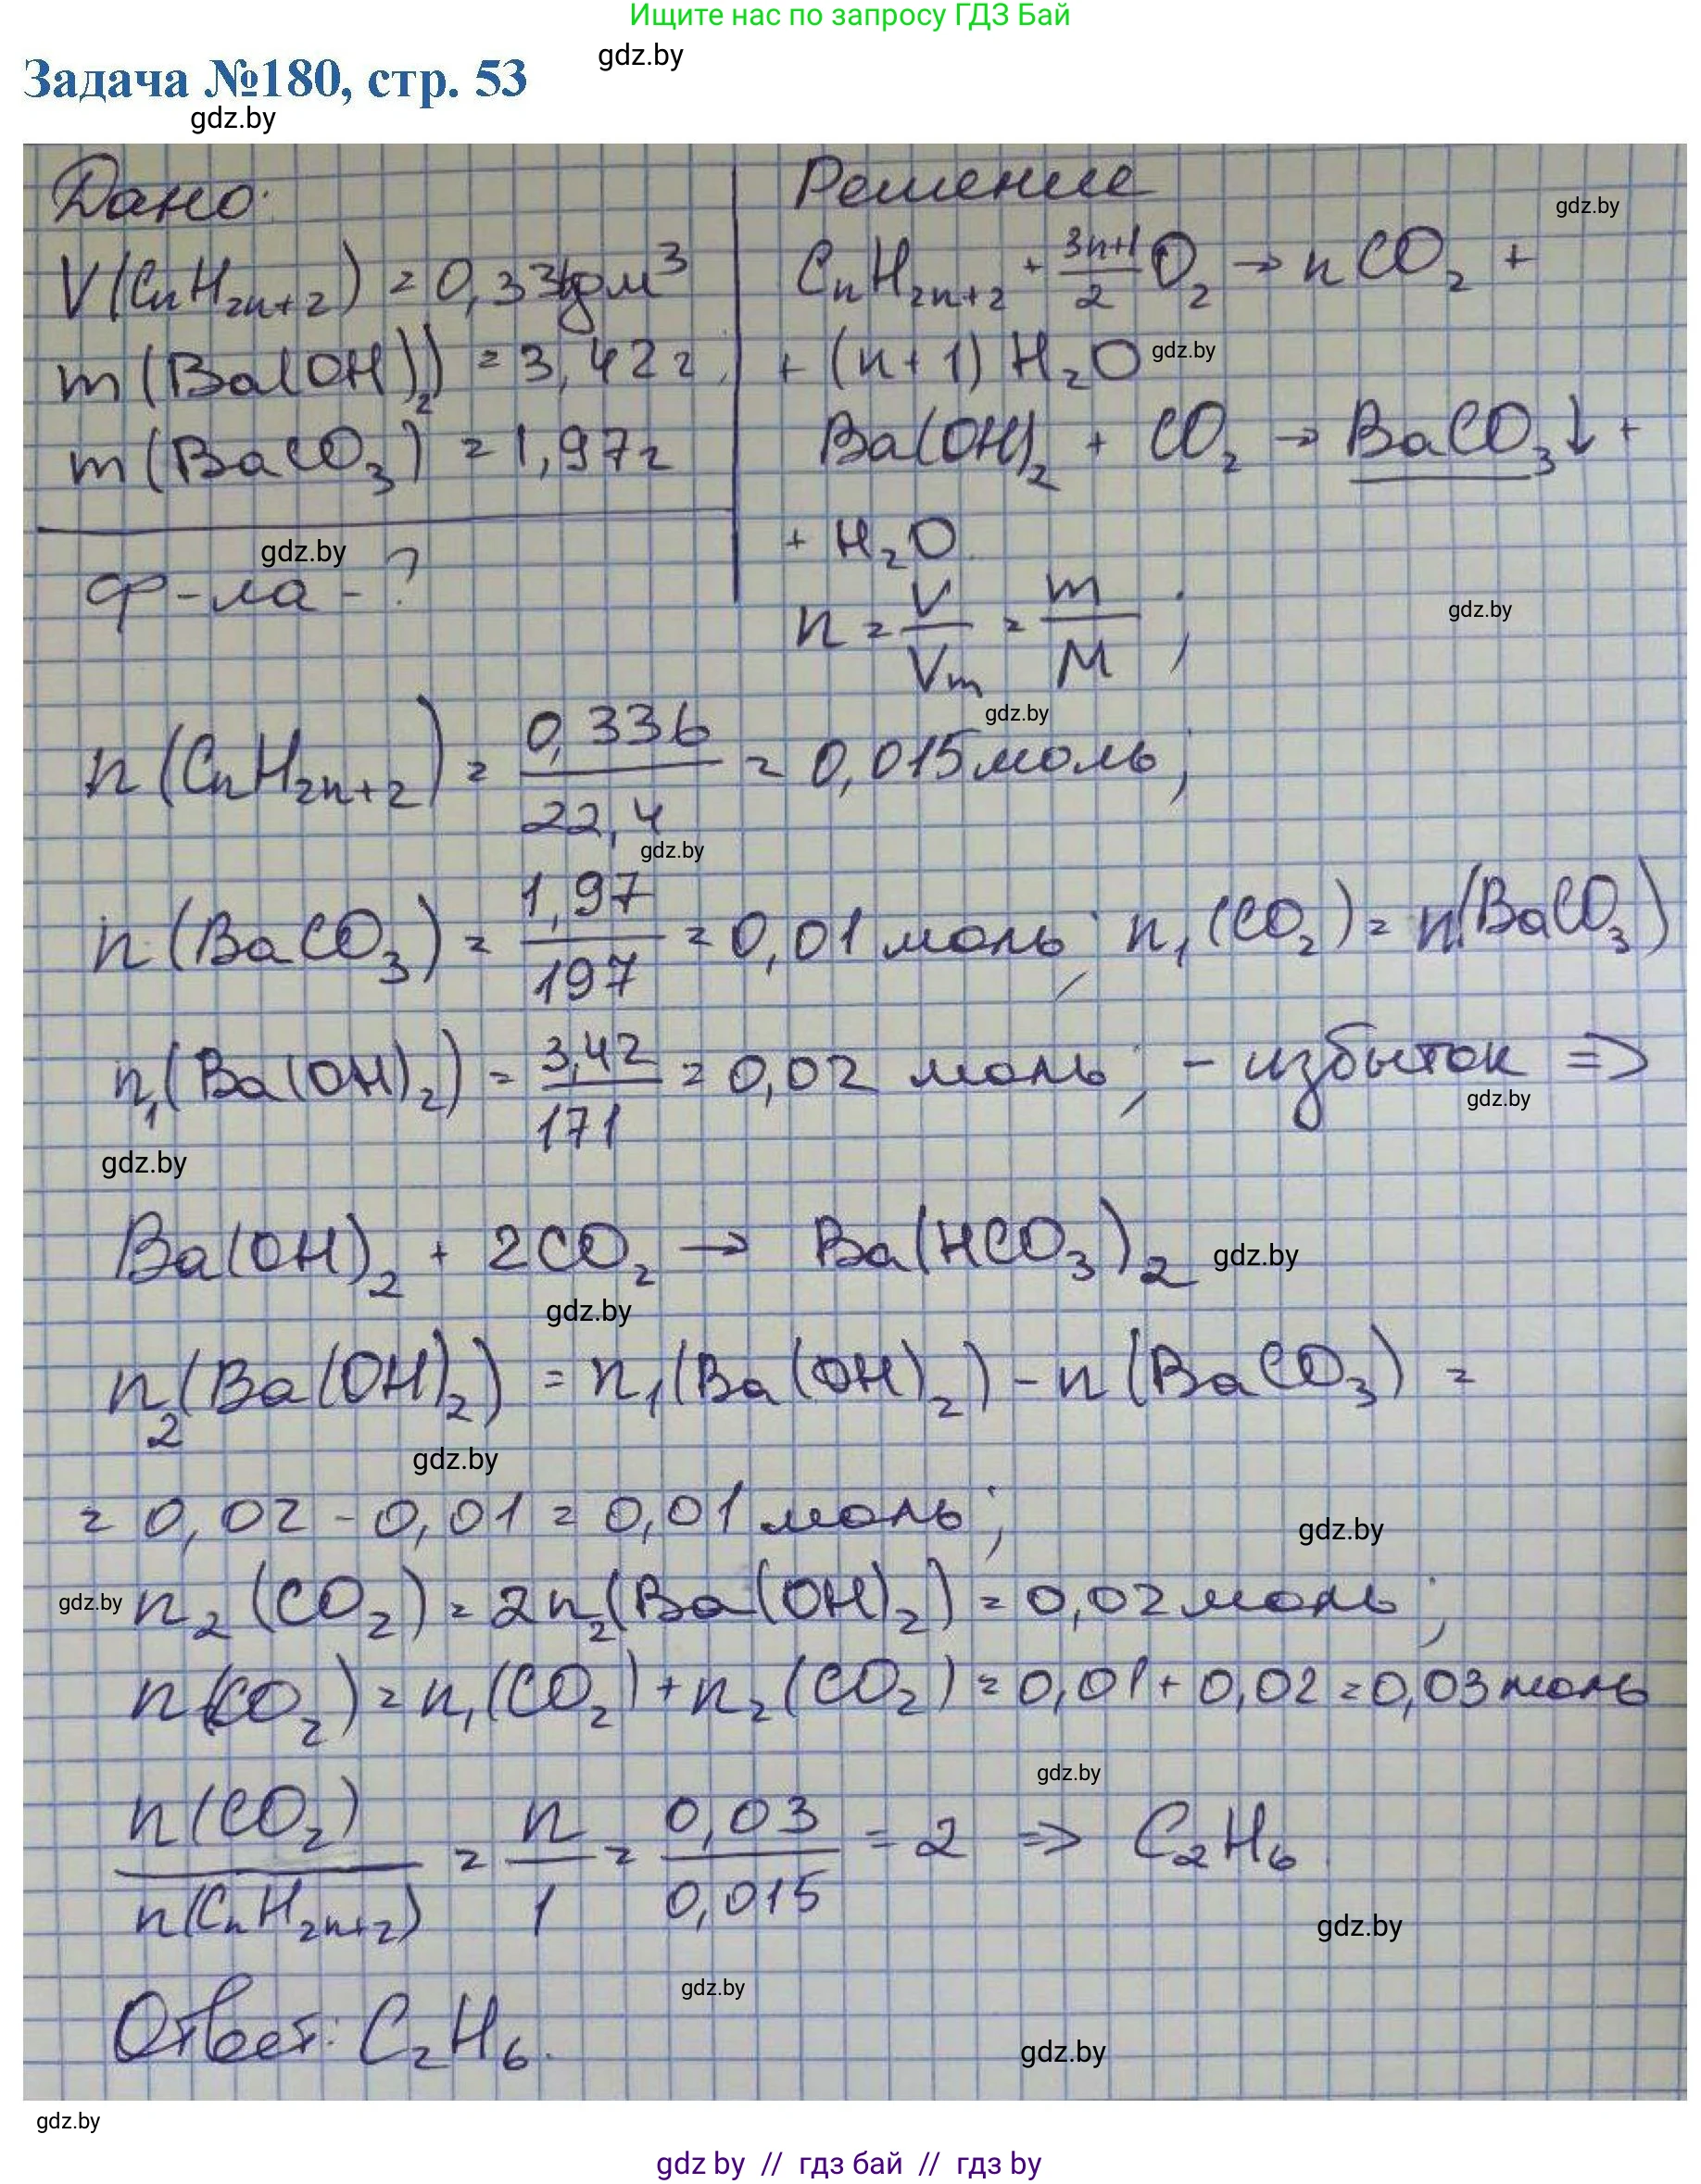 Ищите нас по запросу ГДЗ Бай
gdz.by
Задача №180, стр. 53
gdz.by
Дано:
V(CnH2n+2) = 0,336дм³
m(Ba(OH)2) = 3,42г
m(BaCO3) = 1,97г
gdz.by
ф-ла - ?
Решение
gdz.by
CnH2n+2 + (3n+1)/2 O2 → nCO2 +
+ (n+1) H2O
gdz.by
Ba(OH)2 + CO2 → BaCO3↓ +
+ H2O
n = V/Vm = m/M ;
gdz.by
gdz.by
n(CnH2n+2) = 0,336/22,4 = 0,015моль;
gdz.by
n(BaCO3) = 1,97/197 = 0,01 моль; n1(CO2) = n(BaCO3)
n1(Ba(OH)2) = 3,42/171 = 0,02 моль; - избыток =>
gdz.by
gdz.by
Ba(OH)2 + 2CO2 → Ba(HCO3)2
gdz.by
gdz.by
n2(Ba(OH)2) = n1(Ba(OH)2) - n(BaCO3) =
gdz.by
= 0,02 - 0,01 = 0,01 моль;
gdz.by
gdz.by
n2(CO2) = 2n2(Ba(OH)2) = 0,02моль;
n(CO2) = n1(CO2) + n2(CO2) = 0,01 + 0,02 = 0,03моль
gdz.by
n(CO2)/n(CnH2n+2) = n/1 = 0,03/0,015 = 2 => C2H6.
gdz.by
gdz.by
Ответ: C2H6.
gdz.by
gdz.by
gdz by // гдз бай // гдз by